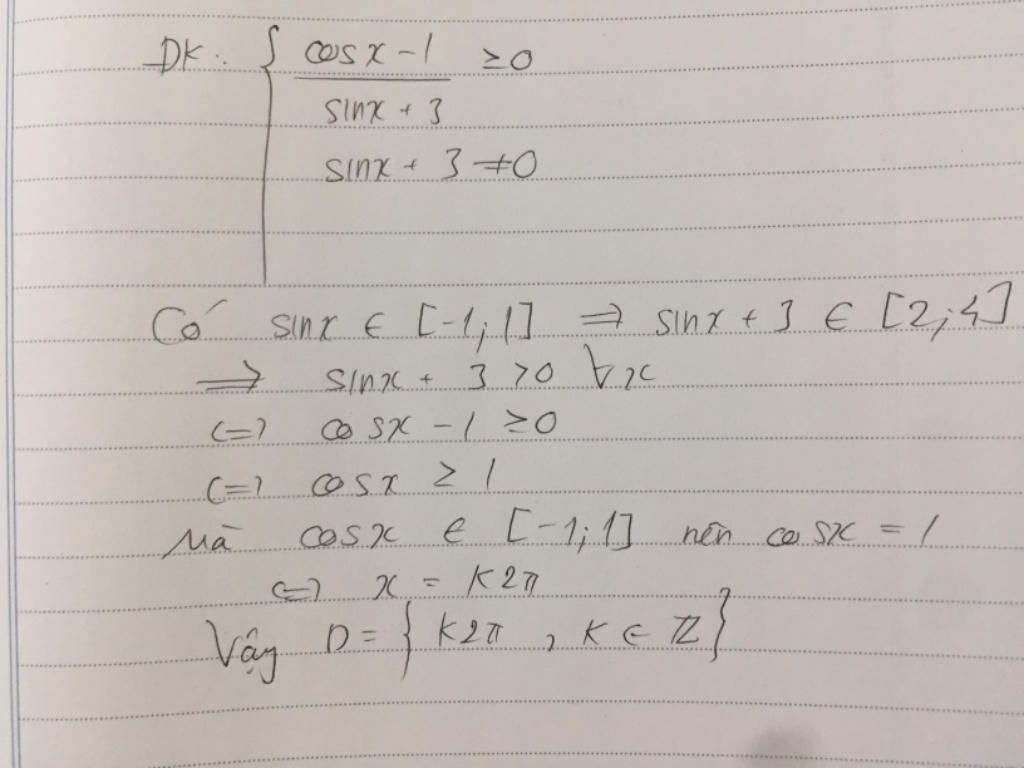 ĐK: { cosx - 1 ≥ 0
sinx + 3
sinx + 3 ≠ 0
Có sinx ∈ [-1; 1] ⇒ sinx + 3 ∈ [2; 4]
⇒ sinx + 3 > 0 ∀x
(=) cosx - 1 ≥ 0
(=) cosx ≥ 1
Mà cosx ∈ [-1; 1] nên cosx = 1
(=) x = k2π
Vậy D = { k2π, k ∈ ℤ }